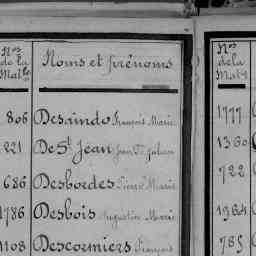 Nos de la Mat le
Noms et prénoms
806 Desaindo François Marie
221 De St Jean Jean Bte Julien
686 Desbordes Pierre Marie
1786 Desbois Augustin Marie
1108 Descormiers François
Nos de la Mat
1777
1360
722
1964
785